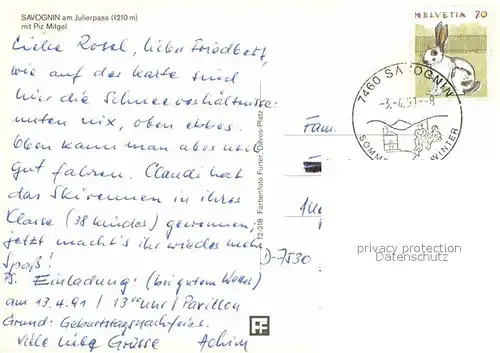 SAVOGNIN am Julierpass (1210 m)
mit Piz Mitgel
Liebe Rosel, lieber Friedbert,
wie auf der Karte sind
hier die Schneeverhältnisse
unten nix, oben etwas.
Oben kann man aber noch
gut fahren. Claudi hat
das Skirennen in ihrer
Klasse (38 Kinder) gewonnen,
jetzt macht's ihr wieder mehr
Spaß!
PS. Einladung: (bei gutem Wetter)
am 13.4.91 / 13⁰⁰ Uhr / Pavillon
Grund: Geburtstagsnachfeier.
Viele liebe Grüsse Achim
12-218 Farbenfoto Furter, Davos-Platz
HELVETIA 70
7460 SAVOGNIN
-3.-4.91-8
SOMMER WINTER
Fam.
D-7530
privacy protection
Datenschutz